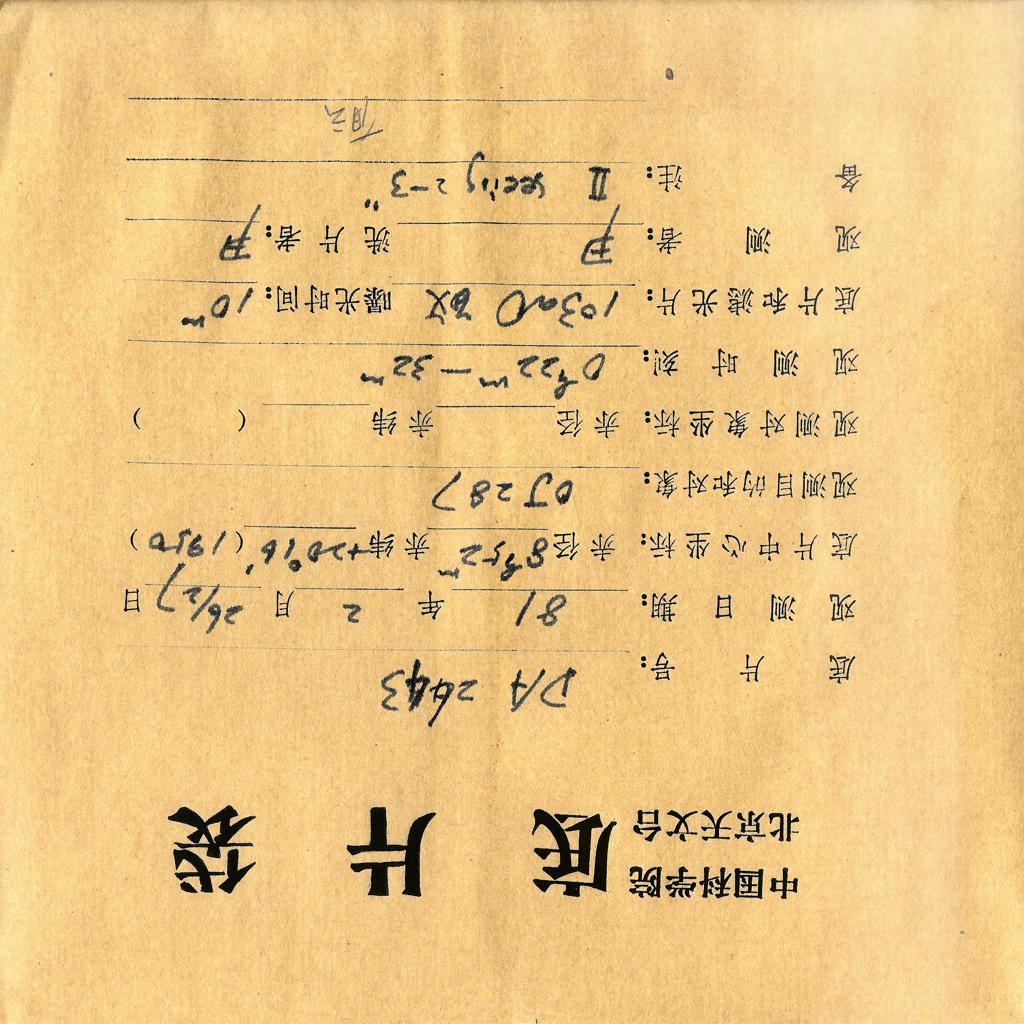 中国科学院
北京天文台 底片袋
底片号: DA 2643
观测日期: 81年2月26/27日
底片中心坐标: 赤径 8h52m 赤纬 +20°16′ (1950)
观测目的和对象: OJ 287
观测对象坐标: 赤径 赤纬 ( )
观测时刻: 0h22m—32m
底片和滤光片: 103aO 曝光时间: 10m
观测者: 尹 洗片者: 尹
备注: II seeing 2-3″